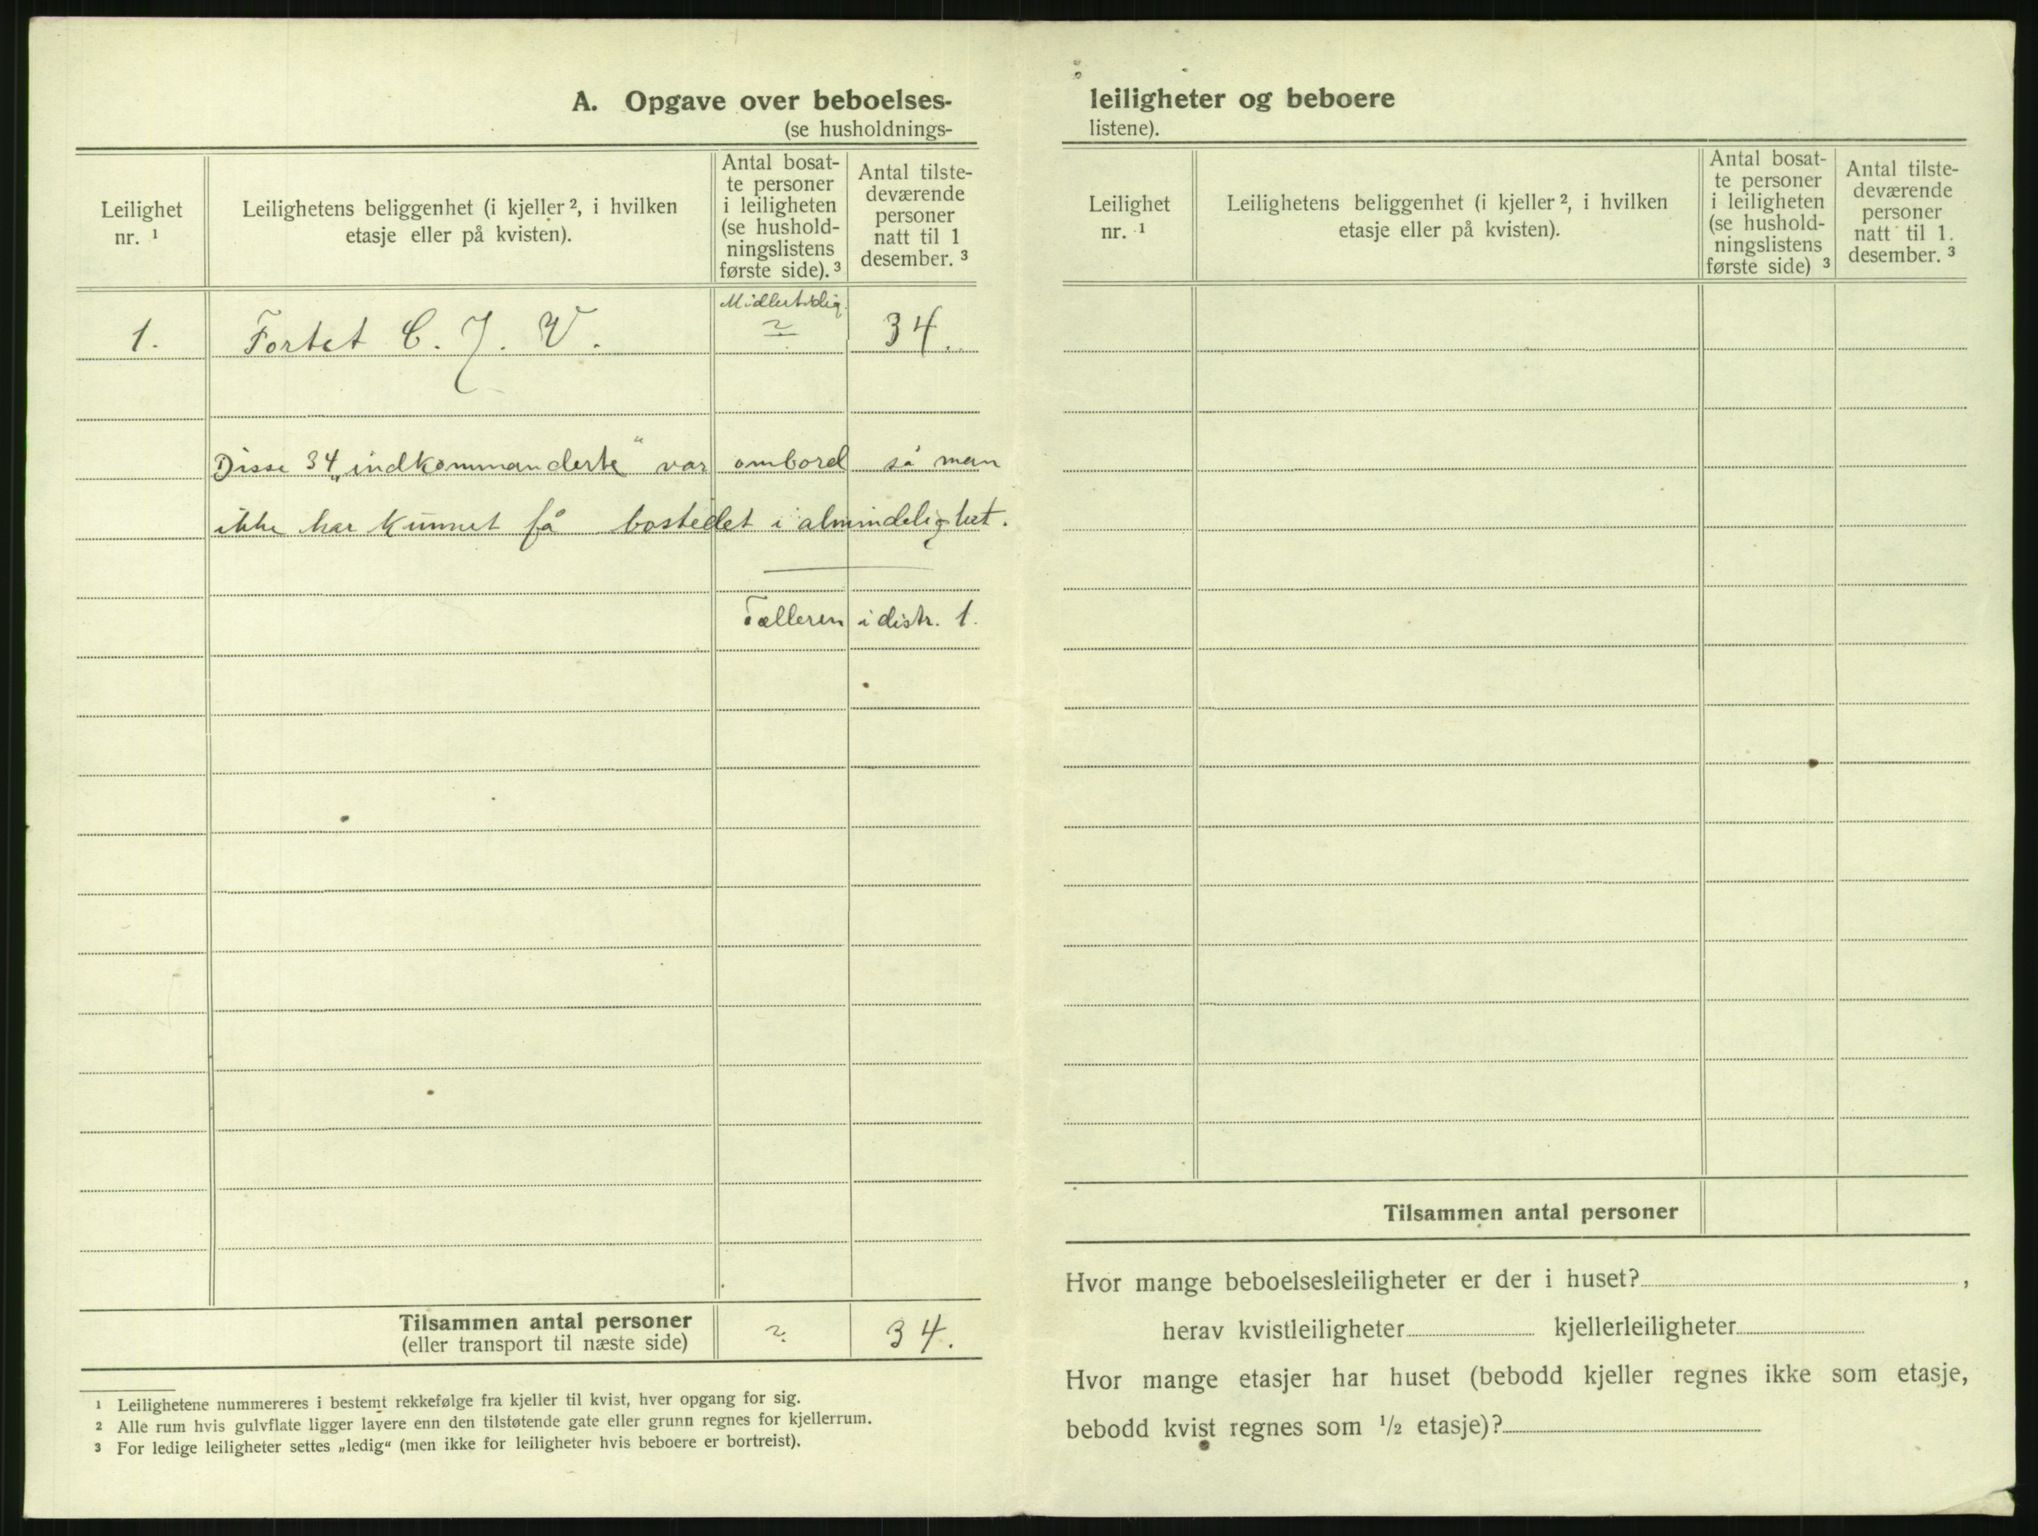 A. Opgave over beboelses-
(se husholdnings-
Leilighet
nr. 1
Leilighetens beliggenhet (i kjeller 2, i hvilken
etasje eller på kvisten).
Antal bosat-
te personer
i leiligheten
(se hushold-
ningslistens
første side). 3
Antal tilste-
deværende
personer
natt til 1
desember. 3
Midlertidig.
1. Fortet C. J. V. 2 34.
Disse 34 „indkommanderte" var ombord så man
ikke har kunnet få bostedet i almindelighet.
Tælleren i distr. 1.
Tilsammen antal personer
(eller transport til næste side)
2. 34.
1 Leilighetene nummereres i bestemt rekkefølge fra kjeller til kvist, hver opgang for sig.
2 Alle rum hvis gulvflate ligger lavere enn den tilstøtende gate eller grunn regnes for kjellerrum.
3 For ledige leiligheter settes „ledig“ (men ikke for leiligheter hvis beboere er bortreist).
leiligheter og beboere
listene).
Leilighet
nr. 1
Leilighetens beliggenhet (i kjeller 2, i hvilken
etasje eller på kvisten).
Antal bosat-
te personer
i leiligheten
(se hushold-
ningslistens
første side) 3
Antal tilste-
deværende
personer
natt til 1.
desember. 3
Tilsammen antal personer
Hvor mange beboelsesleiligheter er der i huset? ,
herav kvistleiligheter kjellerleiligheter
Hvor mange etasjer har huset (bebodd kjeller regnes ikke som etasje,
bebodd kvist regnes som 1/2 etasje)?